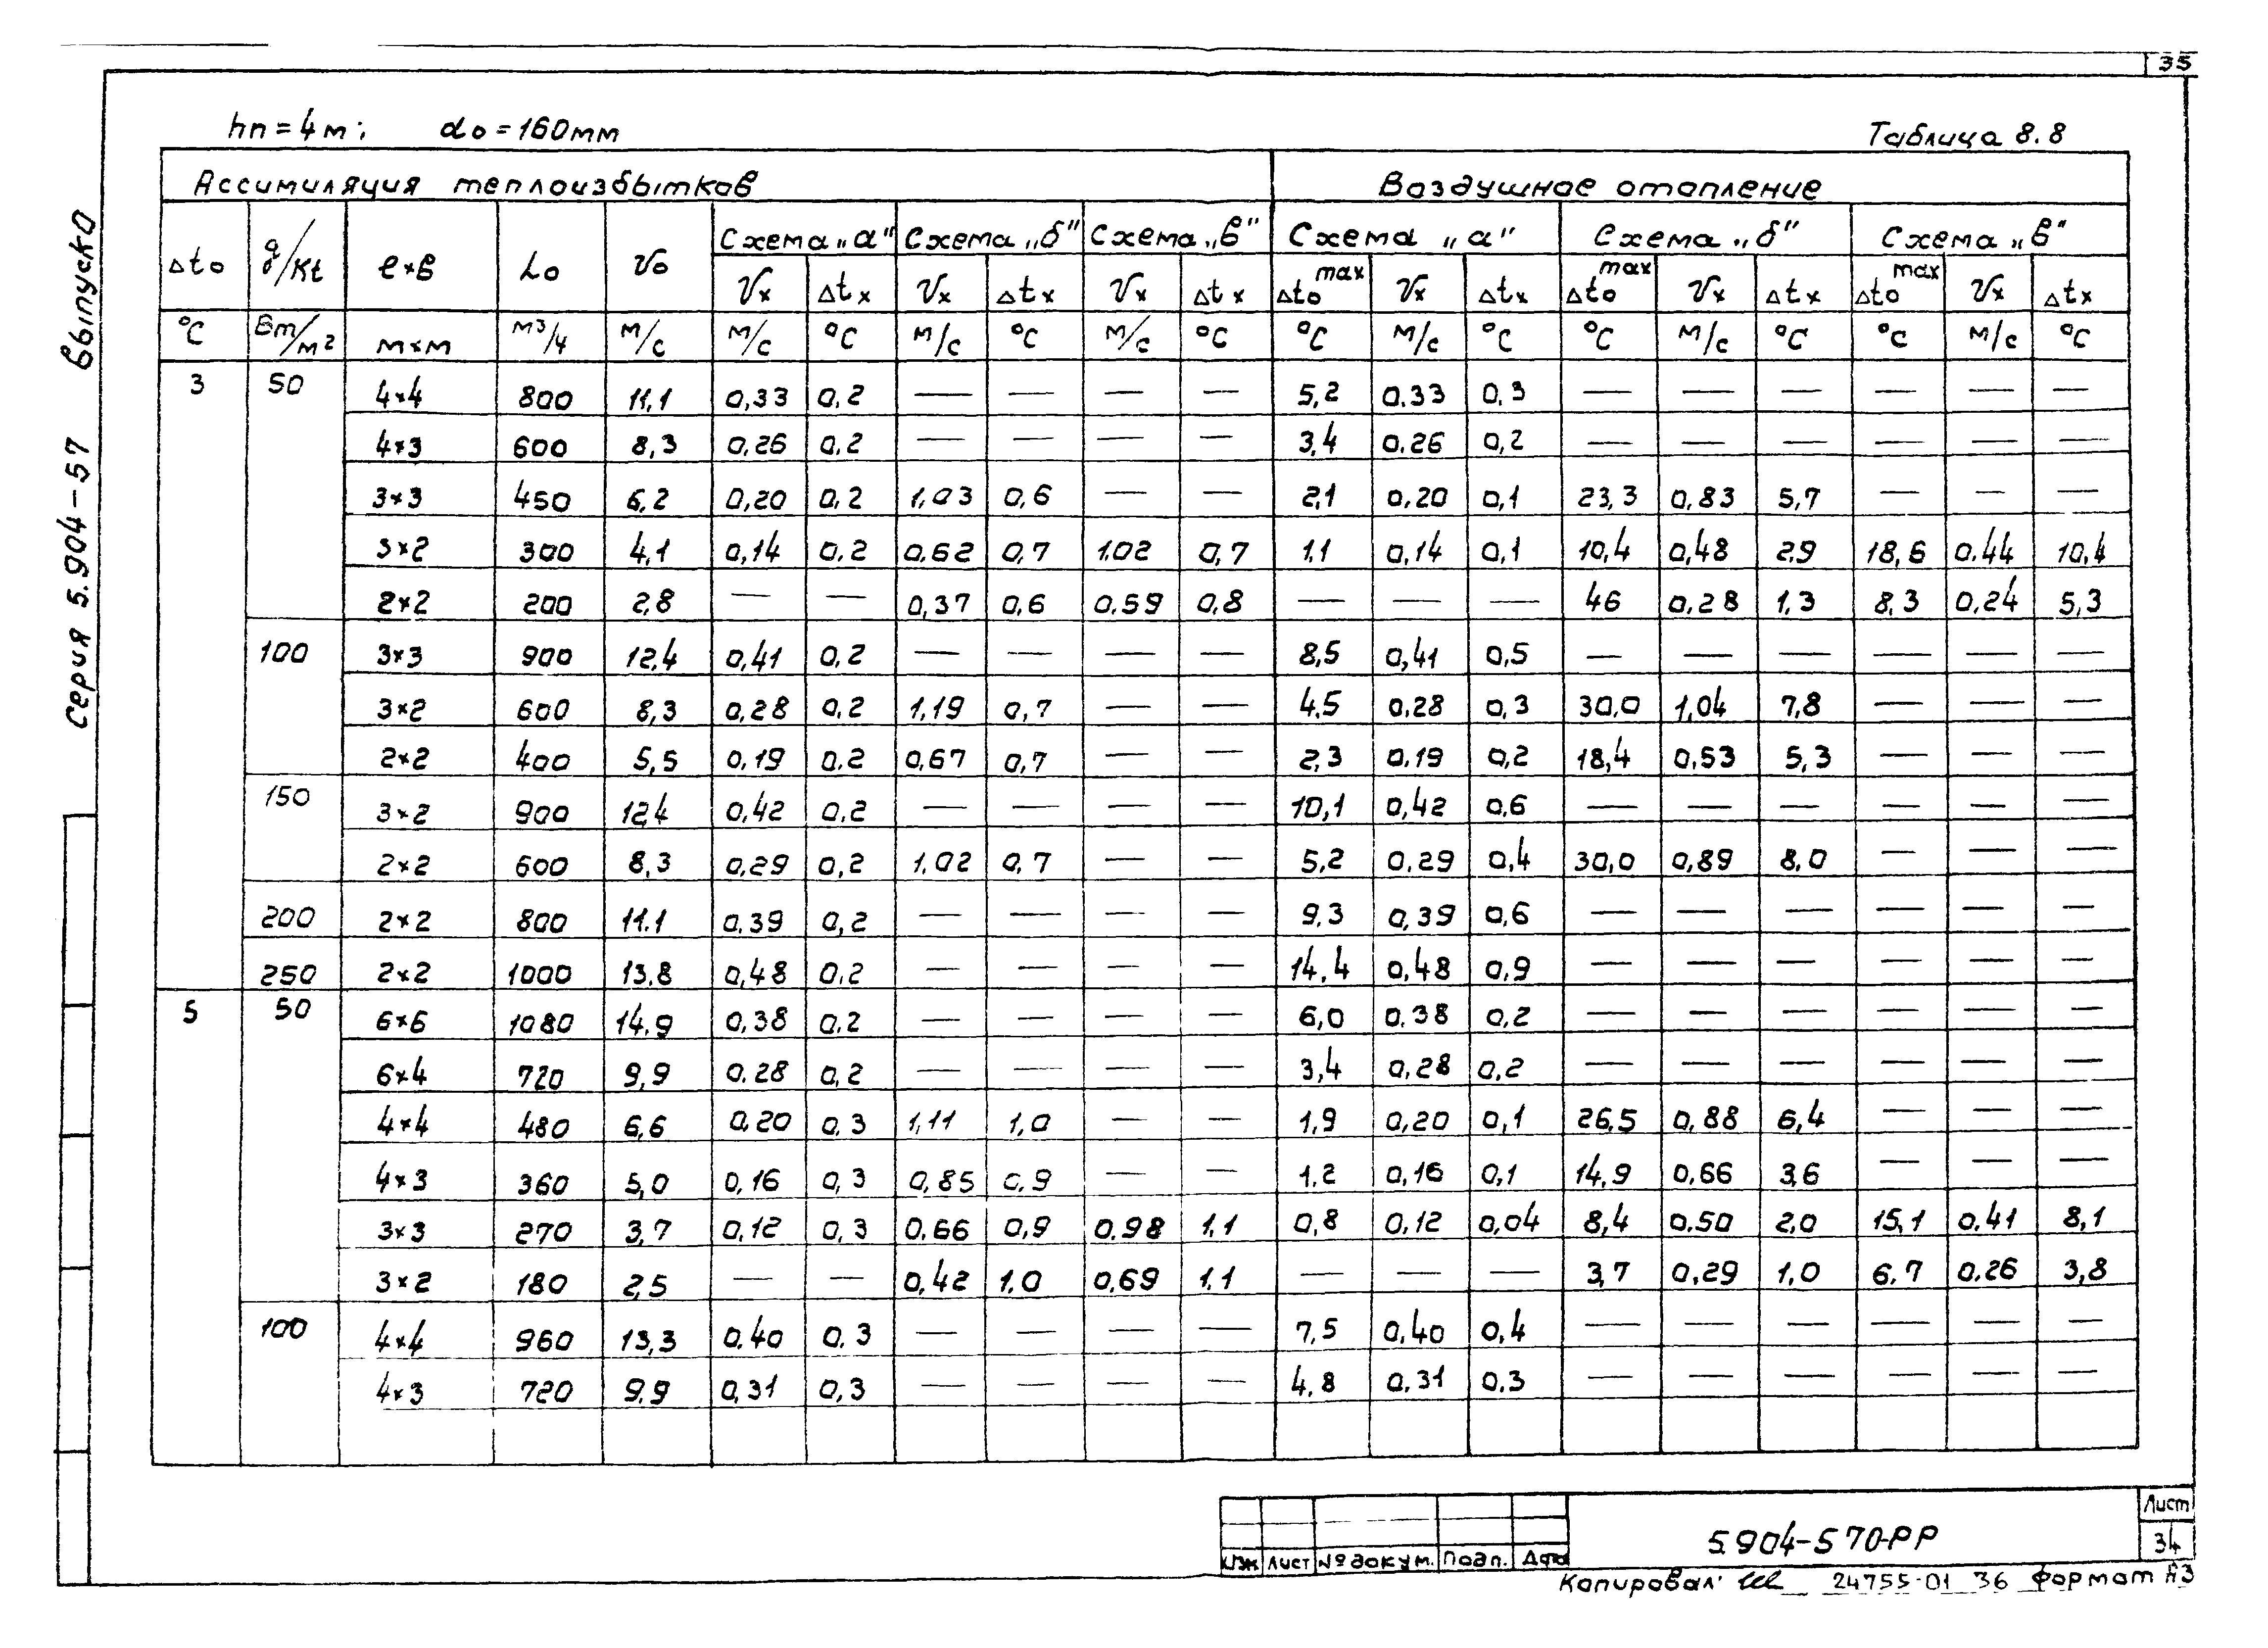 35
hп = 4 м; do = 160мм
Таблица 8.8
Серия 5.904-57 выпуск 0
Ассимиляция теплоизбытков Воздушное отопление
Δto q/Kt ℓ×в Lo Vo Схема „а" Схема „б" Схема „в" Схема „а" Схема „б" Схема „в"
Vx Δtx Vx Δtx Vx Δtx Δto max Vx Δtx Δto max Vx Δtx Δto max Vx Δtx
°C Вт/м² м×м м³/ч м/с м/с °C м/с °C м/с °C °C м/с °C °C м/с °C °C м/с °C
3 50 4×4 800 11,1 0,33 0,2 — — — — 5,2 0.33 0,3 — — — — — —
4×3 600 8,3 0,26 0,2 — — — — 3,4 0.26 0,2 — — — — — —
3×3 450 6,2 0,20 0,2 1,03 0,6 — — 2,1 0,20 0,1 23,3 0,83 5,7 — — —
3×2 300 4,1 0,14 0,2 0,62 0,7 1,02 0,7 1,1 0,14 0,1 10,4 0,48 2,9 18,6 0.44 10,4
2×2 200 2,8 — — 0,37 0,6 0.59 0,8 — — — 46 0,28 1,3 8,3 0,24 5,3
100 3×3 900 12,4 0,41 0,2 — — — — 8,5 0,41 0,5 — — — — — —
3×2 600 8,3 0,28 0,2 1,19 0,7 — — 4,5 0.28 0,3 30,0 1,04 7,8 — — —
2×2 400 5,5 0,19 0.2 0,67 0,7 — — 2,3 0.19 0,2 18,4 0,53 5,3 — — —
150 3×2 900 12,4 0,42 0,2 — — — — 10,1 0,42 0,6 — — — — — —
2×2 600 8,3 0,29 0,2 1,02 0,7 — — 5,2 0.29 0,4 30,0 0,89 8,0 — — —
200 2×2 800 11.1 0.39 0,2 — — — — 9,3 0,39 0,6 — — — — — —
250 2×2 1000 13,8 0,48 0,2 — — — — 14,4 0,48 0,9 — — — — — —
5 50 6×6 1080 14,9 0,38 0,2 — — — — 6,0 0.38 0,2 — — — — — —
6×4 720 9,9 0.28 0,2 — — — — 3,4 0,28 0,2 — — — — — —
4×4 480 6,6 0,20 0,3 1,11 1,0 — — 1,9 0,20 0,1 26,5 0,88 6,4 — — —
4×3 360 5,0 0,16 0,3 0,85 0,9 — — 1,2 0,16 0,1 14,9 0,66 3,6 — — —
3×3 270 3,7 0,12 0,3 0,66 0,9 0.98 1,1 0,8 0,12 0,04 8,4 0.50 2,0 15,1 0,41 8,1
3×2 180 2,5 — — 0,42 1,0 0,69 1,1 — — — 3,7 0,29 1,0 6,7 0.26 3,8
100 4×4 960 13,3 0,40 0,3 — — — — 7,5 0,40 0,4 — — — — — —
4×3 720 9,9 0,31 0,3 — — — — 4,8 0,31 0.3 — — — — — —
Изм Лист № докум. Подп. Дата
5.904-57 0-РР
Лист
34
Копировал: 24755-01 36 Формат А3